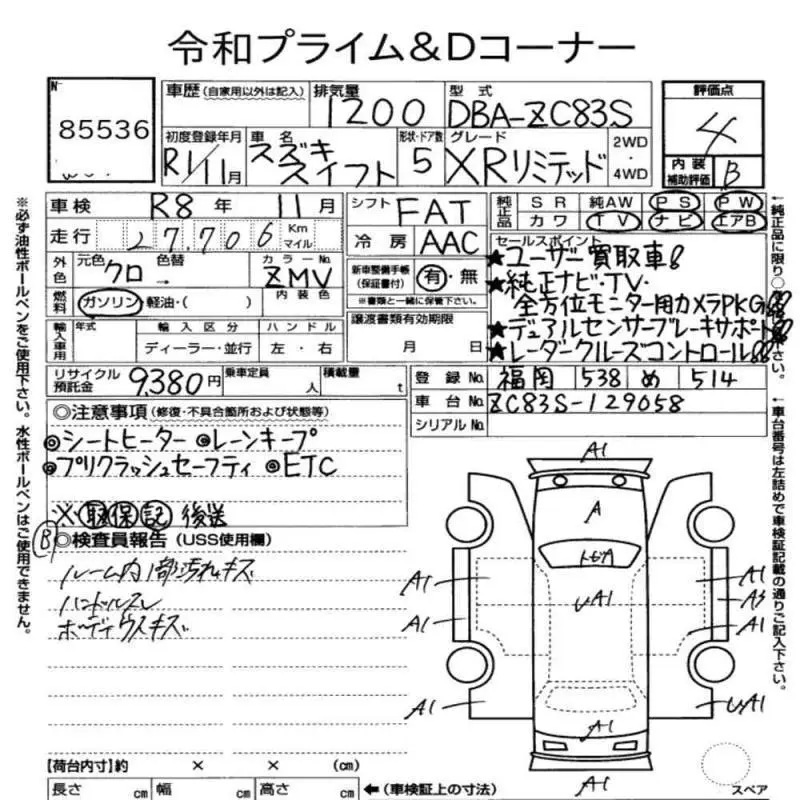 令和プライム&Dコーナー
85536
車歴(自家用以外は記入)
排気量
1200
型式
DBA-ZC83S
評価点
4
初度登録年月
R1/11月
車名
スズキ
スイフト
形状・ドア数
5
グレード
XRリミテッド
2WD
・
4WD
内装
補助評価
B
車検
R8年 11月
シフト
FAT
純正品
SR 純AW PS PW
カワ TV ナビ エアB
走行
27,706
Km
マイル
冷房
AAC
セールスポイント
★ユーザー買取車!!
★純正ナビ・TV・
全方位モニター用カメラPKG!!
★デュアルセンサーブレーキサポート!!
★レーダークルーズコントロール!!
外色
元色
クロ
色替
→
カラーNo.
ZMV
新車整備手帳
(保証書付)
有・無
※書類と一緒に保管下さい。
燃料
ガソリン・軽油・( )
内装色
譲渡書類有効期限
月 日
輸入車用
年式
輸入区分
ディーラー・並行
ハンドル
左・右
リサイクル
預託金
9,380円
乗車定員
人
積載量
t
登録No.
福岡 538 め 514
車台No.
ZC83S-129058
シリアルNo.
◎注意事項(修復・不具合箇所および状態等)
◎シートヒーター ◎レーンキープ
◎プリクラッシュセーフティ ◎ETC
※取保記 後送
B
◎検査員報告(USS使用欄)
ルーム内1部汚れキズ
ハンドルスレ
ボディウスキズ
A1
A
A1
A1
A1
A3
A1
A1
A1
A1
A1
スペア
【荷台内寸】約 × × (cm)
長さ cm 幅 cm 高さ cm
←(車検証上の寸法)
※必ず油性ボールペンをご使用下さい。水性ボールペンはご使用できません。
←純正品に限り○
下さい。
←車台番号は左詰めで車検証記載の通りご記入下さい。